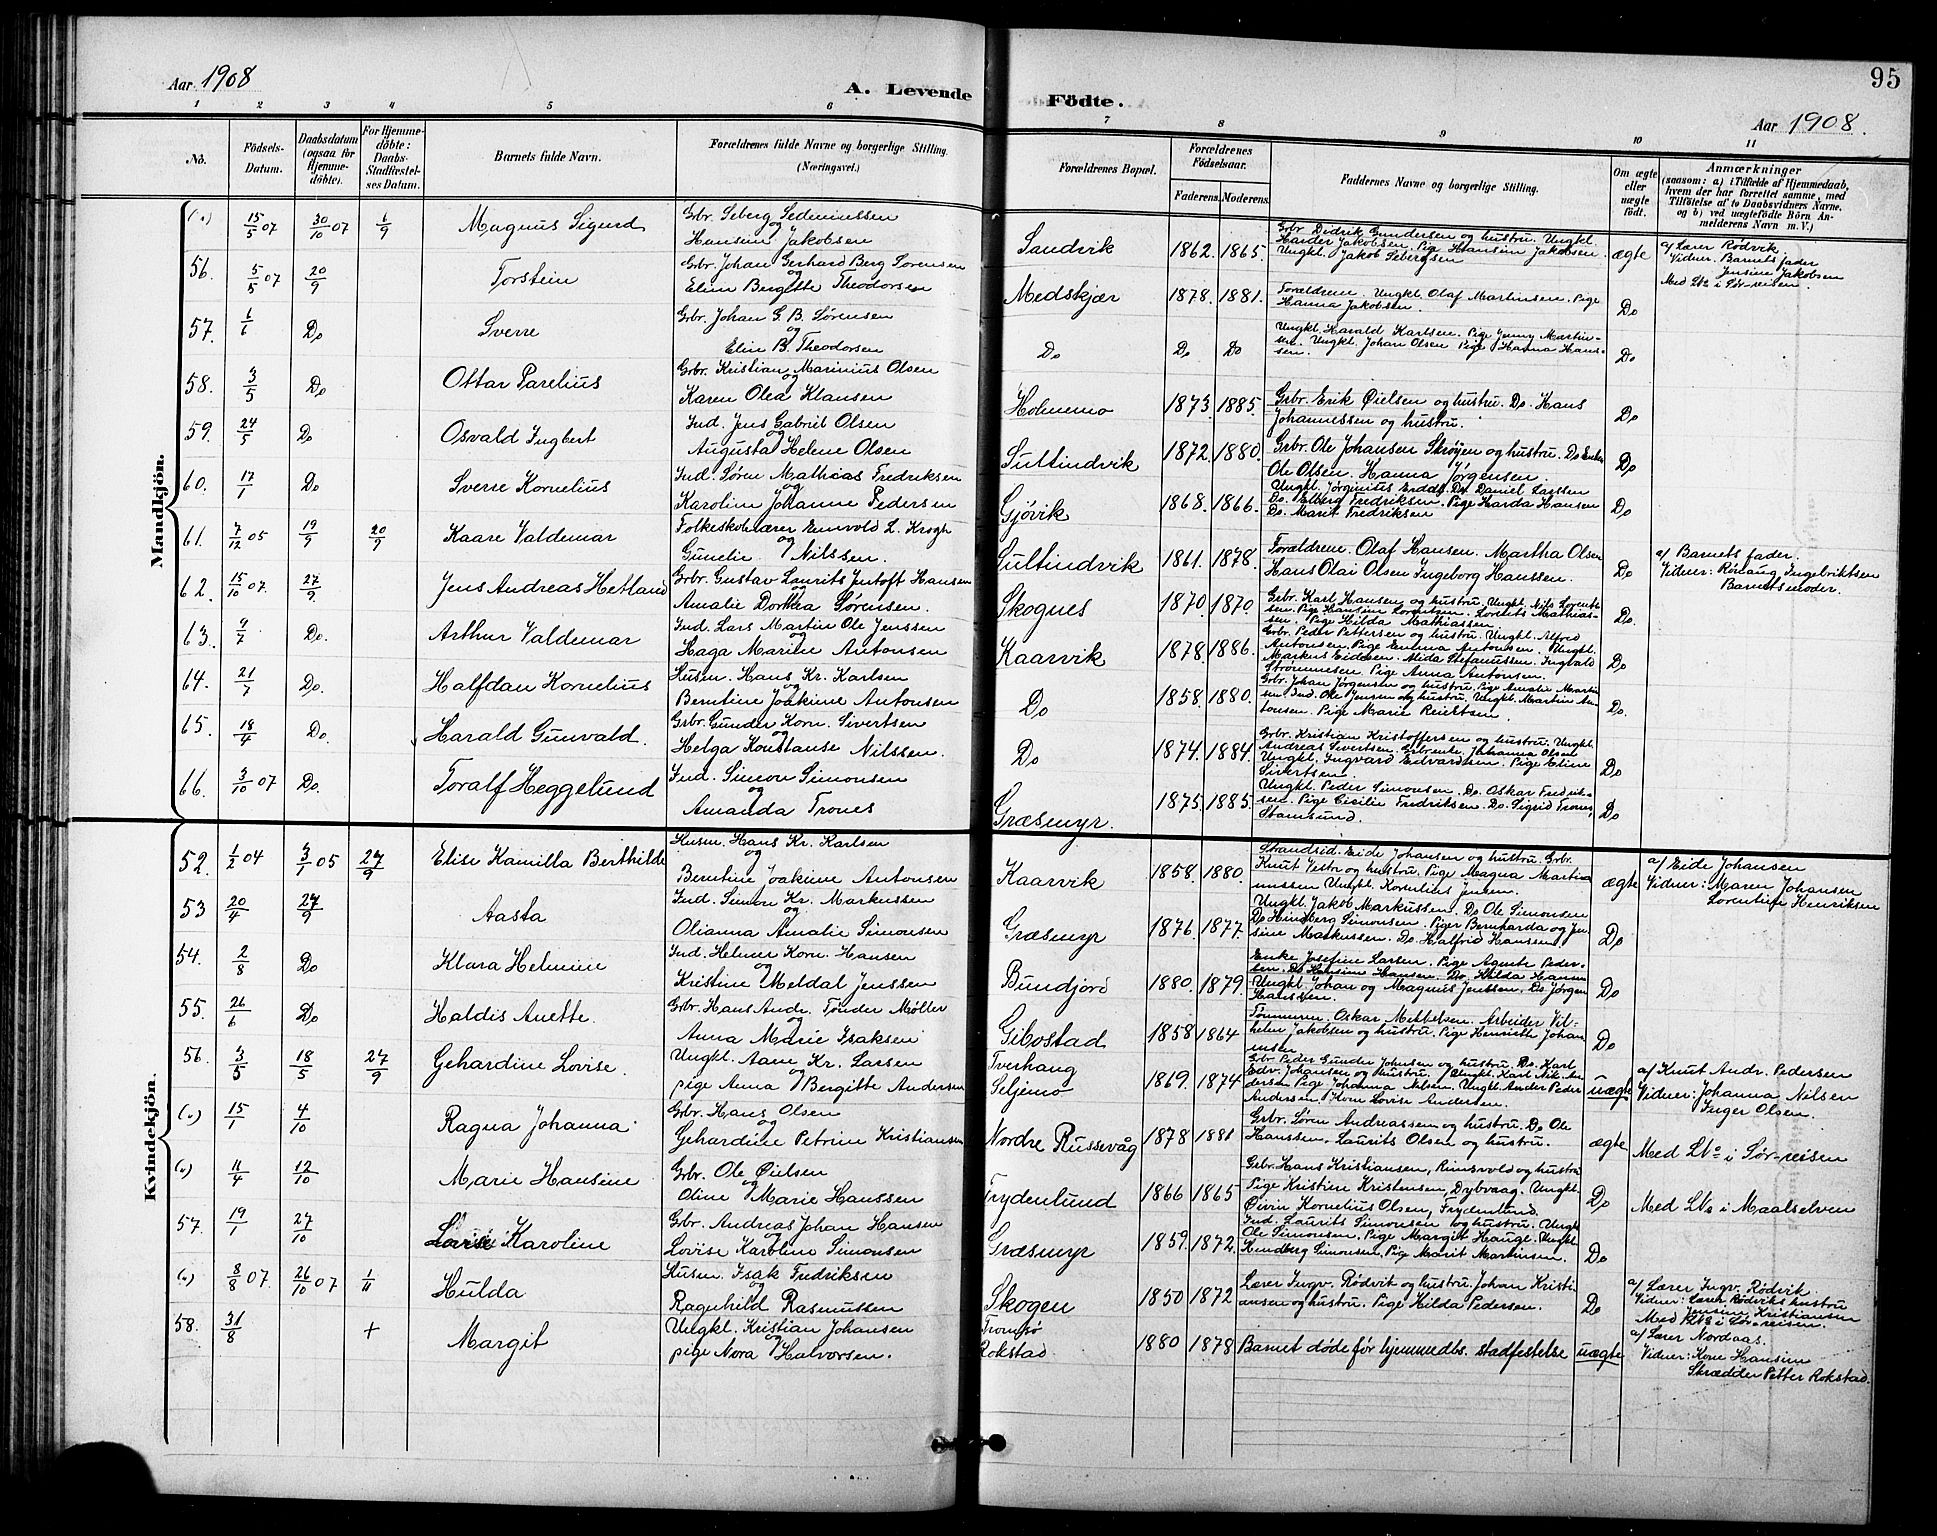 Aar 1908
A. Levende Födte.
95
Aar 1908.
1 2 3 4 5 6 7 8 9 10 11
No. | Födsels-Datum. | Daabsdatum (ogsaa for Hjemme-döbte). | For Hjemme-döbte: Daabs-Stadfæstel-ses Datum. | Barnets fulde Navn. | Forældrenes fulde Navne og borgerlige Stilling. (Næringsvei.) | Forældrenes Bopæl. | Forældrenes Födselsaar. Faderens. Moderens. | Faddernes Navne og borgerlige Stilling. | Om ægte eller uægte födt. | Anmærkninger (saasom: a) i Tilfælde af Hjemmedaab, hvem der har forrettet samme, med Tilföielse af to Daabsvidners Navne, og b) ved uægtefödte Börn Anmelderens Navn m.V.)
Mandkjön.
(") 15/5 07 30/10 07 1/9 Magnus Sigurd Grb. Seberg Sedeniussen og Hansine Jakobsen Sandvik 1862. 1865. Grb Didrik Gundersen og hustru. Ungkl. Harder Jakobsen. Pige Hansine Jakobsen. Ungkl. Jakob Sebergsen ægte a/ Lærer Rødvik Vidner. Barnets fader Jensine Jakobsen Med LNo i Sør-reisen.
56. 5/5 07 20/9 Torstein Grb. Johan Gerhard Berg Sørensen og Elin Bergitte Theodorsen Medskjær 1878. 1881. Forældrene. Ungkl. Olaf Martinsen. Pige Hanna Jakobsen. Do
57. 1/6 Do Sverre Grb. Johan G. B. Sørensen og Elin B. Theodorsen Do Do Do Ungkl. Harald Karlsen. Pige Jenny Martinsen. Ungkl. Johan Olsen Pige Hanna Hanssen. Do
58. 3/5 Do Ottar Parelius Grb. Kristian Marinius Olsen og Karen Olea Klausen Holmemo 1873. 1885. Grb. Erik Øielsen og hustru. Do. Hans Johannessen og hustru. Do
59. 24/5 Do Osvald Ingbert Ind. Jens Gabriel Olsen og Augusta Helene Olsen Sultindvik 1872. 1880. Grb. Ole Johansen Skrøyen og hustru. Do Enke Ole Olsen. Hanna Jørgensen. Do
60. 17/1 Do Sverre Kornelius Ind. Søren Mathias Fredriksen og Karoline Johanne Pedersen Gjövik 1868. 1866. Ungkl. Jørginius Do. Daniel Larssen Do. Elberg Fredriksen. Pige Harda Hansen Do. Marit Fredriksen Do
61. 7/12 05 19/9 20/9 Kaare Valdemar Folkeskolelærer Enevold L. Krogh og Gunelie Nilssen. Sultindvik 1861. 1878. Forældrene. Olaf Hansen. Martha Olsen Hans Olai Olsen Ingeborg Hanssen. Do a/ Barnets fader. Vidner: Rønaug Ingebriktsen Barnets moder.
62. 15/10 07. 27/9 Jens Andreas Hetland Grb. Gustav Laurits Jentoft Hansen og Amalie Dorthea Sørensen. Skognes 1870. 1870. Grb. Karl Hansen og hustru. Ungkl. Nils Lorentsen. Pige Hansine Lorentsen. Lorents Mathiassen. Pige Hilda Mathiassen Do
63. 7/7 Do. Arthur Valdemar Ind. Lars Martin Ole Jenssen og Haga Marine Antonsen Kaarvik 1878. 1886. Grb. Peder Pettersen og hustru. Ungkl. Alfred Antonsen. Pige Emma Antonsen. Ungkl. Markus Eidesen. Alida Stefanussen. Ingvald Strømmesen. Pige Anna Antonsen. Do
64. 21/7 Do. Halfdan Kornelius Husm. Hans Kr. Karlsen og Berntine Joakine Antonsen Do 1858. 1880. Grb. Johan Jörgensen og hustru. Pige Amalie Martinsen Ind. Ole Jensen og hustru. Ungkl. Martin Antonsen. Pige Marie Do.
65. 18/4 Do. Harald Gunvald. Grb. Gunder Korn. Sivertsen og Helga Konstanse Nilssen. Do 1874. 1884. Grb. Kristian Kristoffersen og hustru. Ungkl. Andreas Sivertsen. Grbenke Johanna Olsen Ungkl. Ingvard Edvardsen. Pige Eline Sivertsen. Do
66. 3/10 07 Do. Toralf Heggelund Ind. Simon Simonsen og Amanda Trones Græsmyr. 1875. 1885. Ungkl. Peder Simonsen. Do. Oskar Fredriksen. Pige Cicilie Fredriksen. Do. Sigrid Trones, Stamsund. Do
Kvindekjön.
52. 1/2 04 3/1 05 27/9 Elise Kamilla Berthilde Husm. Hans Kr. Karlsen og Berntine Joakine Antonsen Kaarvik 1858. 1880. Strandsid. Eide Johansen og hustru. Grb. Knut Vestr og hustru. Pige Magna Martinussen Ungkl. Kornelius Jensen. ægte a/ Eide Johansen Vidner: Maren Johansen Lorentine Henriksen
53 20/4 27/9 Aasta Ind. Simon Kr. Markussen og Olianna Amalie Simonsen Græsmyr 1876. 1877. Ungkl. Jakob Markussen. Do Ole Simonsen Do Hindberg Simonsen. Piger Bernharda og Jensine Markussen. Do. Halfrid Hansen Do
54. 2/8 Do Klara Helmine Ind. Helmer Korn. Hansen og Kristine Meldal Jenssen Bundjord 1880. 1879. Enke Josefine Larsen. Pige Agnete Pedersen. Do Hansine Hansen. Do. Hilda Hansen Ungkl. Johan og Magnus Jenssen. Do Jørgen Hanssen. Do
55. 26/6 Do Haldis Anette. Grb. Hans Andr. Tønder Møller og Anna Marie Isaksen Gibostad 1858 1864 Tømmerm. Oskar Mettelsen. Arbeider Vilhelm Jakobsen og hustru. Pige Henriette Johannessen Do
56. 3/5 18/5 27/9 Gehardine Lovise. Ungkl. Aane Kr. Larsen og pige Anna Bergitte Andersen Tverhaug Seljemo 1869. 1874 Grb. Peder Gunder Johnsen og hustru. Do. Karl Edv. Johansen og hustru. Ungkl. Karl Nik. Andersen Pige Johanna Nilsen. Ungkl. Ander Peder Andersen. Kone Lovise Andersen. uægte a/ Knut Andr. Pedersen Vidner: Johanna Nilsen Inger Olsen.
(") 15/1 4/10 Ragna Johanna Grb. Hans Olsen og Gehardine Petrine Kristiansen Nordre Russevåg 1878 1881 Grb. Søren Andreassen og hustru. Do Ole Hanssen. Laurits Olsen og hustru. ægte Med LNo i Sør-reisen
(") 11/4 12/10 Marie Hansine Grb. Ole Øielsen og Oline Marie Hanssen Frydenlund 1866 1865 Grb. Hans Kristiansen, Rimsvold og hustru Pige Kristine Kristensen, Dybvaag. Ungkl. Øivin Kornelius Olsen, Frydenlund. Do Med LNo i Maalselven
57. 19/1 27/10 Lovise Karoline Grb. Andreas Johan Hansen og Lovise Karoline Simonsen Græsmyr 1859. 1872. Ind. Laurits Simonsen og hustru. Ungkl. Ole Simonsen, Pige Margit Hauge. Ungkl Hindberg Simonsen, Pige Marit Martinsen. Do
(") 8/8 07. 26/10 07 1/11 Hulda Husm. Isak Fredriksen og Ragnhild Rasmussen Skogen 1850 1872 Lærer Ingv. Rødvik og hustru. Johan Kristiansen og hustru. Pige Hilda Pedersen. Do a/ Lærer Ingv. Rødvik. Vidner: Lærer Rødviks hustru Jensine Kristiansen Med LNo i Sør-reisen.
58. 31/8 + Margit Ungkl. Kristian Johansen og pige Nora Halvorsen. Tromsø Rokstad 1880 1878 Barnet døde før hjemmedbs. stadfestelse uægte a/ Lærer Nordaas. Vidner: Kone Hansine Skrædder Petter Rokstad.